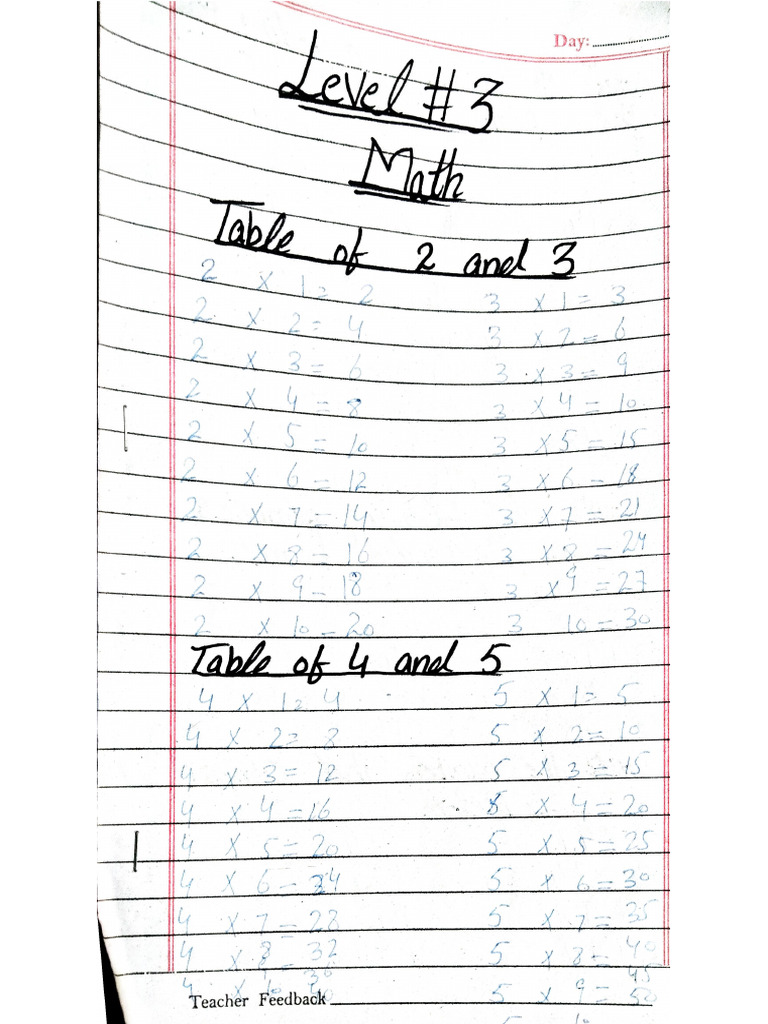 Day:
Level #3
Math
Table of 2 and 3
2 x 1 = 2 3 x 1 = 3
2 x 2 = 4 3 x 2 = 6
2 x 3 = 6 3 x 3 = 9
2 x 4 = 8 3 x 4 = 10
2 x 5 = 10 3 x 5 = 15
2 x 6 = 12 3 x 6 - 18
2 x 7 = 14 3 x 7 = 21
2 x 8 - 16 3 x 8 = 24
2 x 9 - 18 3 x 9 = 27
2 x 10 = 20 3 10 = 30
Table of 4 and 5
4 x 1 = 4 5 x 1 = 5
4 x 2 = 8 5 x 2 = 10
4 x 3 = 12 5 x 3 = 15
4 x 4 = 16 5 x 4 = 20
4 x 5 = 20 5 x 5 = 25
4 x 6 - 24 5 x 6 = 30
4 x 7 - 28 5 x 7 = 35
4 x 8 = 32 5 x 8 = 40
4 x 36 5 x 9 = 45
4 x 10 40 50
Teacher Feedback
10